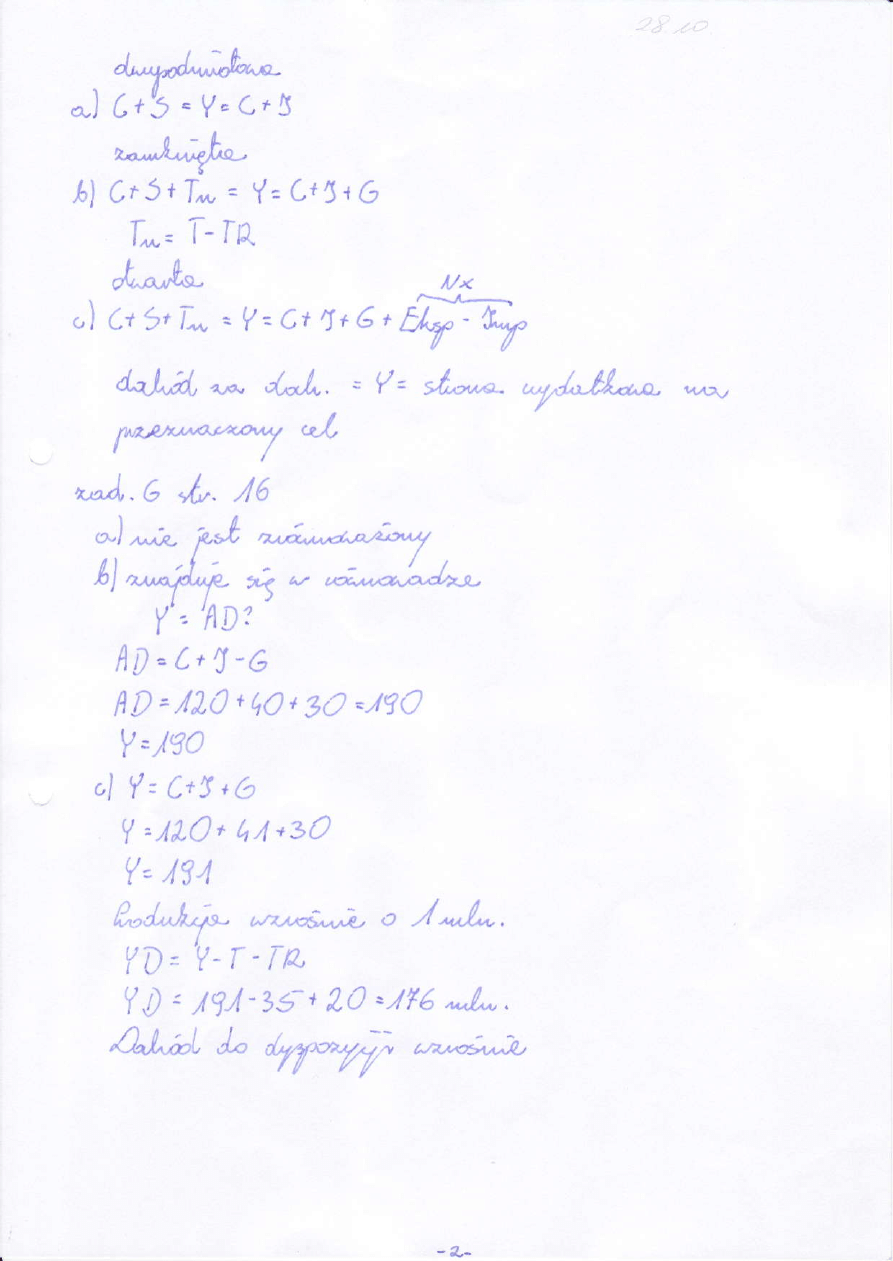 28.10
dwupodmiotowa
a) C+S = Y = C+I
zamknięta
b) C+S+Tn = Y = C+I+G
Tn = T-TR
otwarta
Nx
c) C+S+Tn = Y = C+I+G+Eksp - Imp
dochód za doch. = Y = strona wydatkowa na
przeznaczony cel
zad. 6 str. 16
a) nie jest zrównoważony
b) znajduje się w równowadze
Y = AD?
AD = C+I-G
AD = 120+40+30 = 190
Y = 190
c) Y = C+I+G
Y = 120+41+30
Y = 191
Produkcja wzrośnie o 1 mln.
YD = Y-T-TR
YD = 191-35+20 = 176 mln.
Dochód do dyspozycji wzrośnie
-2-